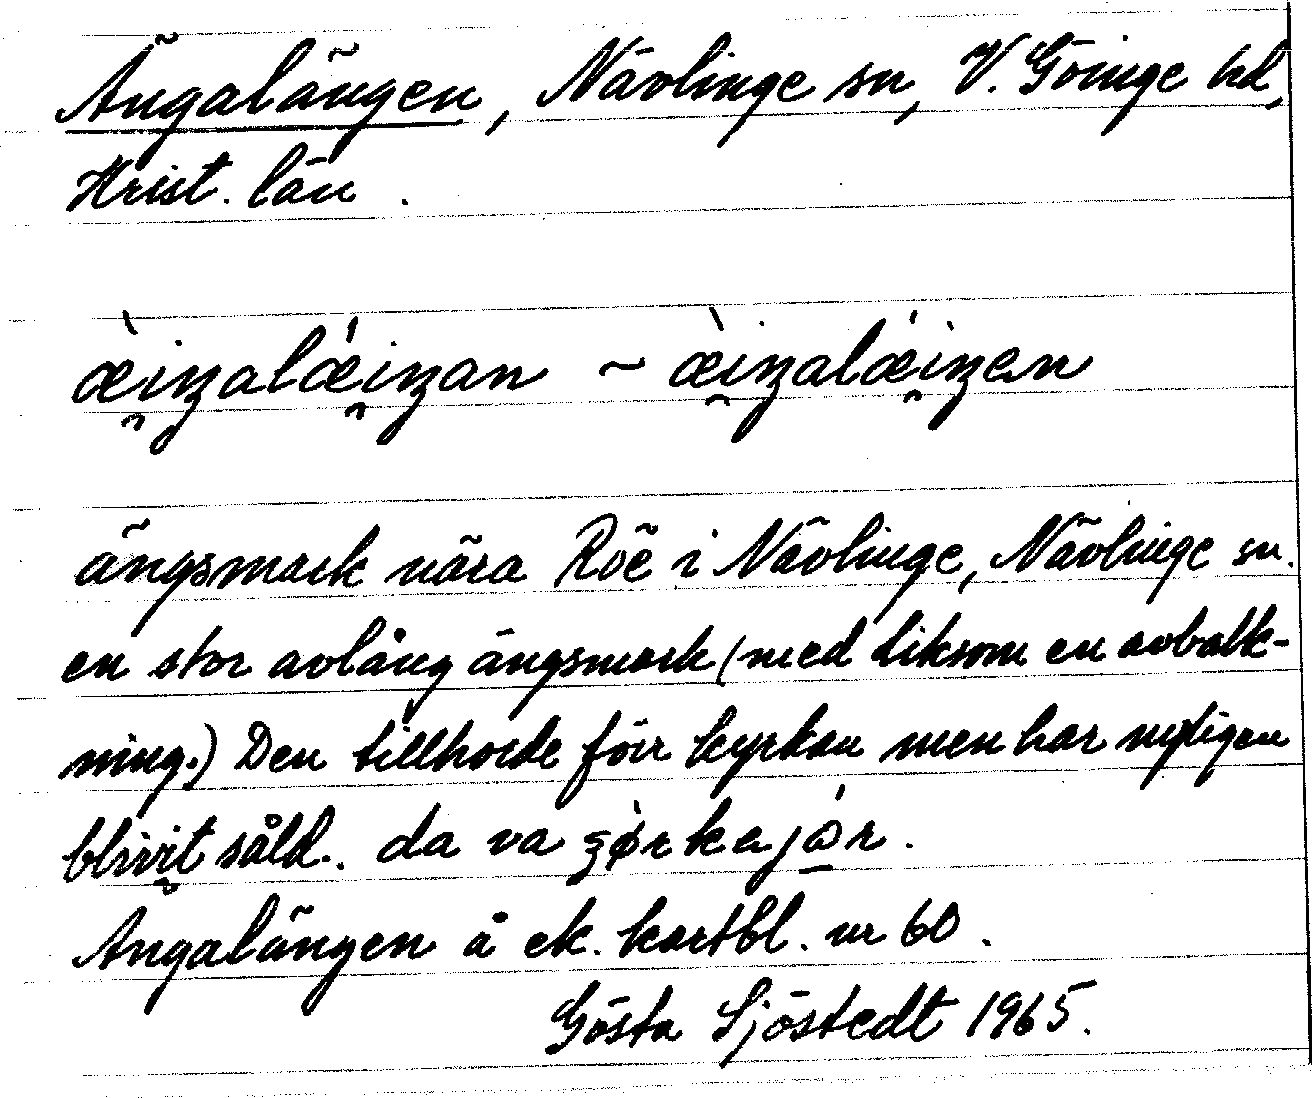 Ängalängen, Nävlinge sn, V. Göinge hd,
Krist. län.
æ̀i̯ŋalǽi̯ŋan ~ æ̀i̯ŋalǽi̯ŋen
ängsmark nära Röe i Nävlinge, Nävlinge sn.
en stor avlång ängsmark (med liksom en avbalk-
ning.) Den tillhörde förr kyrkan men har nyligen
blivit såld. da va
Ängalängen å ek. kartbl. nr 60.
Gösta Sjöstedt 1965.